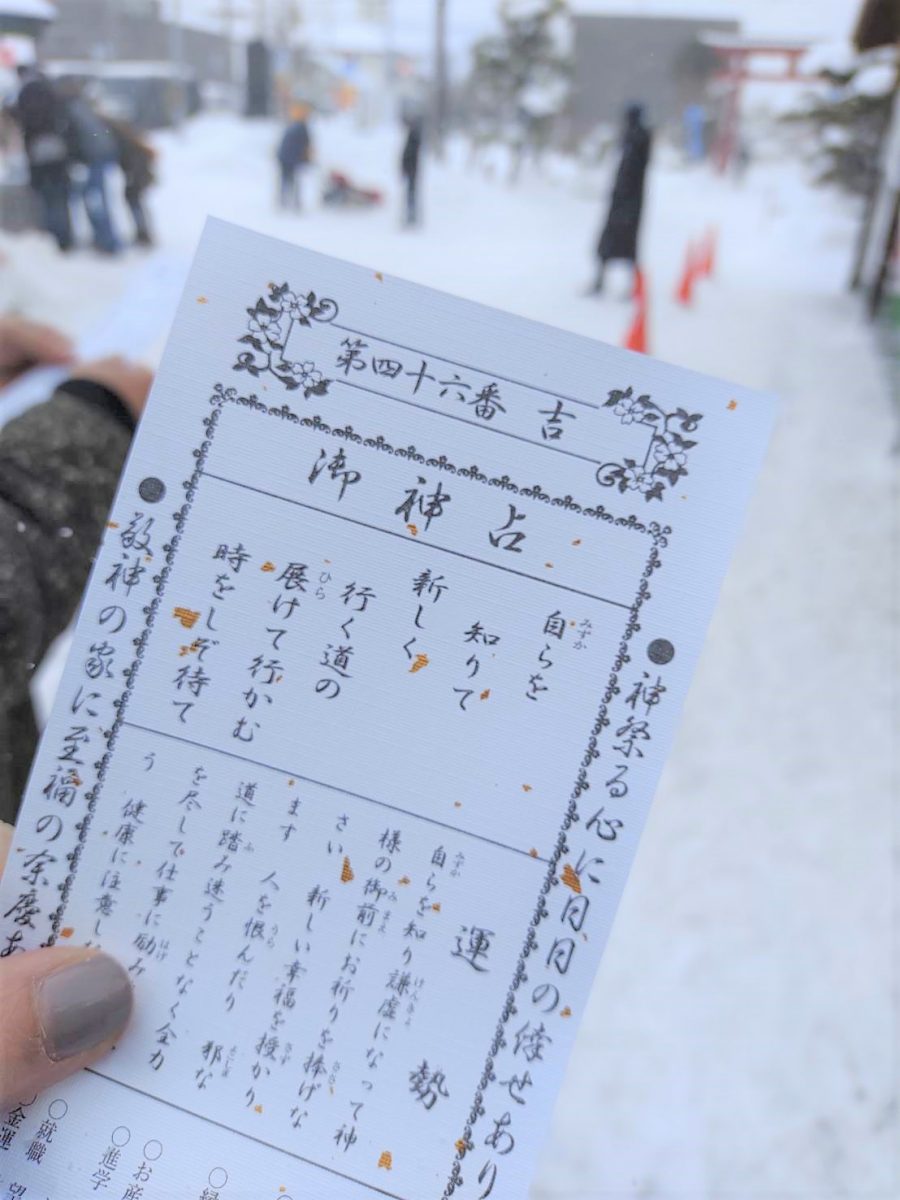 第四十六番 吉
御神占
神祭る心に日日の倖せあり
自らを
みずか
知りて
新しく
行く道の
展けて行かむ
ひら
時をしぞ待て
運勢
自らを知り謙虚になって神
みずか
けんきょ
様の御前にお祈りを捧げな
みまえ
ささ
さい 新しい幸福を授かり
さず
ます 人を恨んだり 邪な
うら
よこしま
道に踏み迷うことなく全力
ふ
を尽して仕事に励み
はげ
う 健康に注意し
敬神の家に至福の余慶あ
○縁
○お産
○進学
○就職
○金運 望